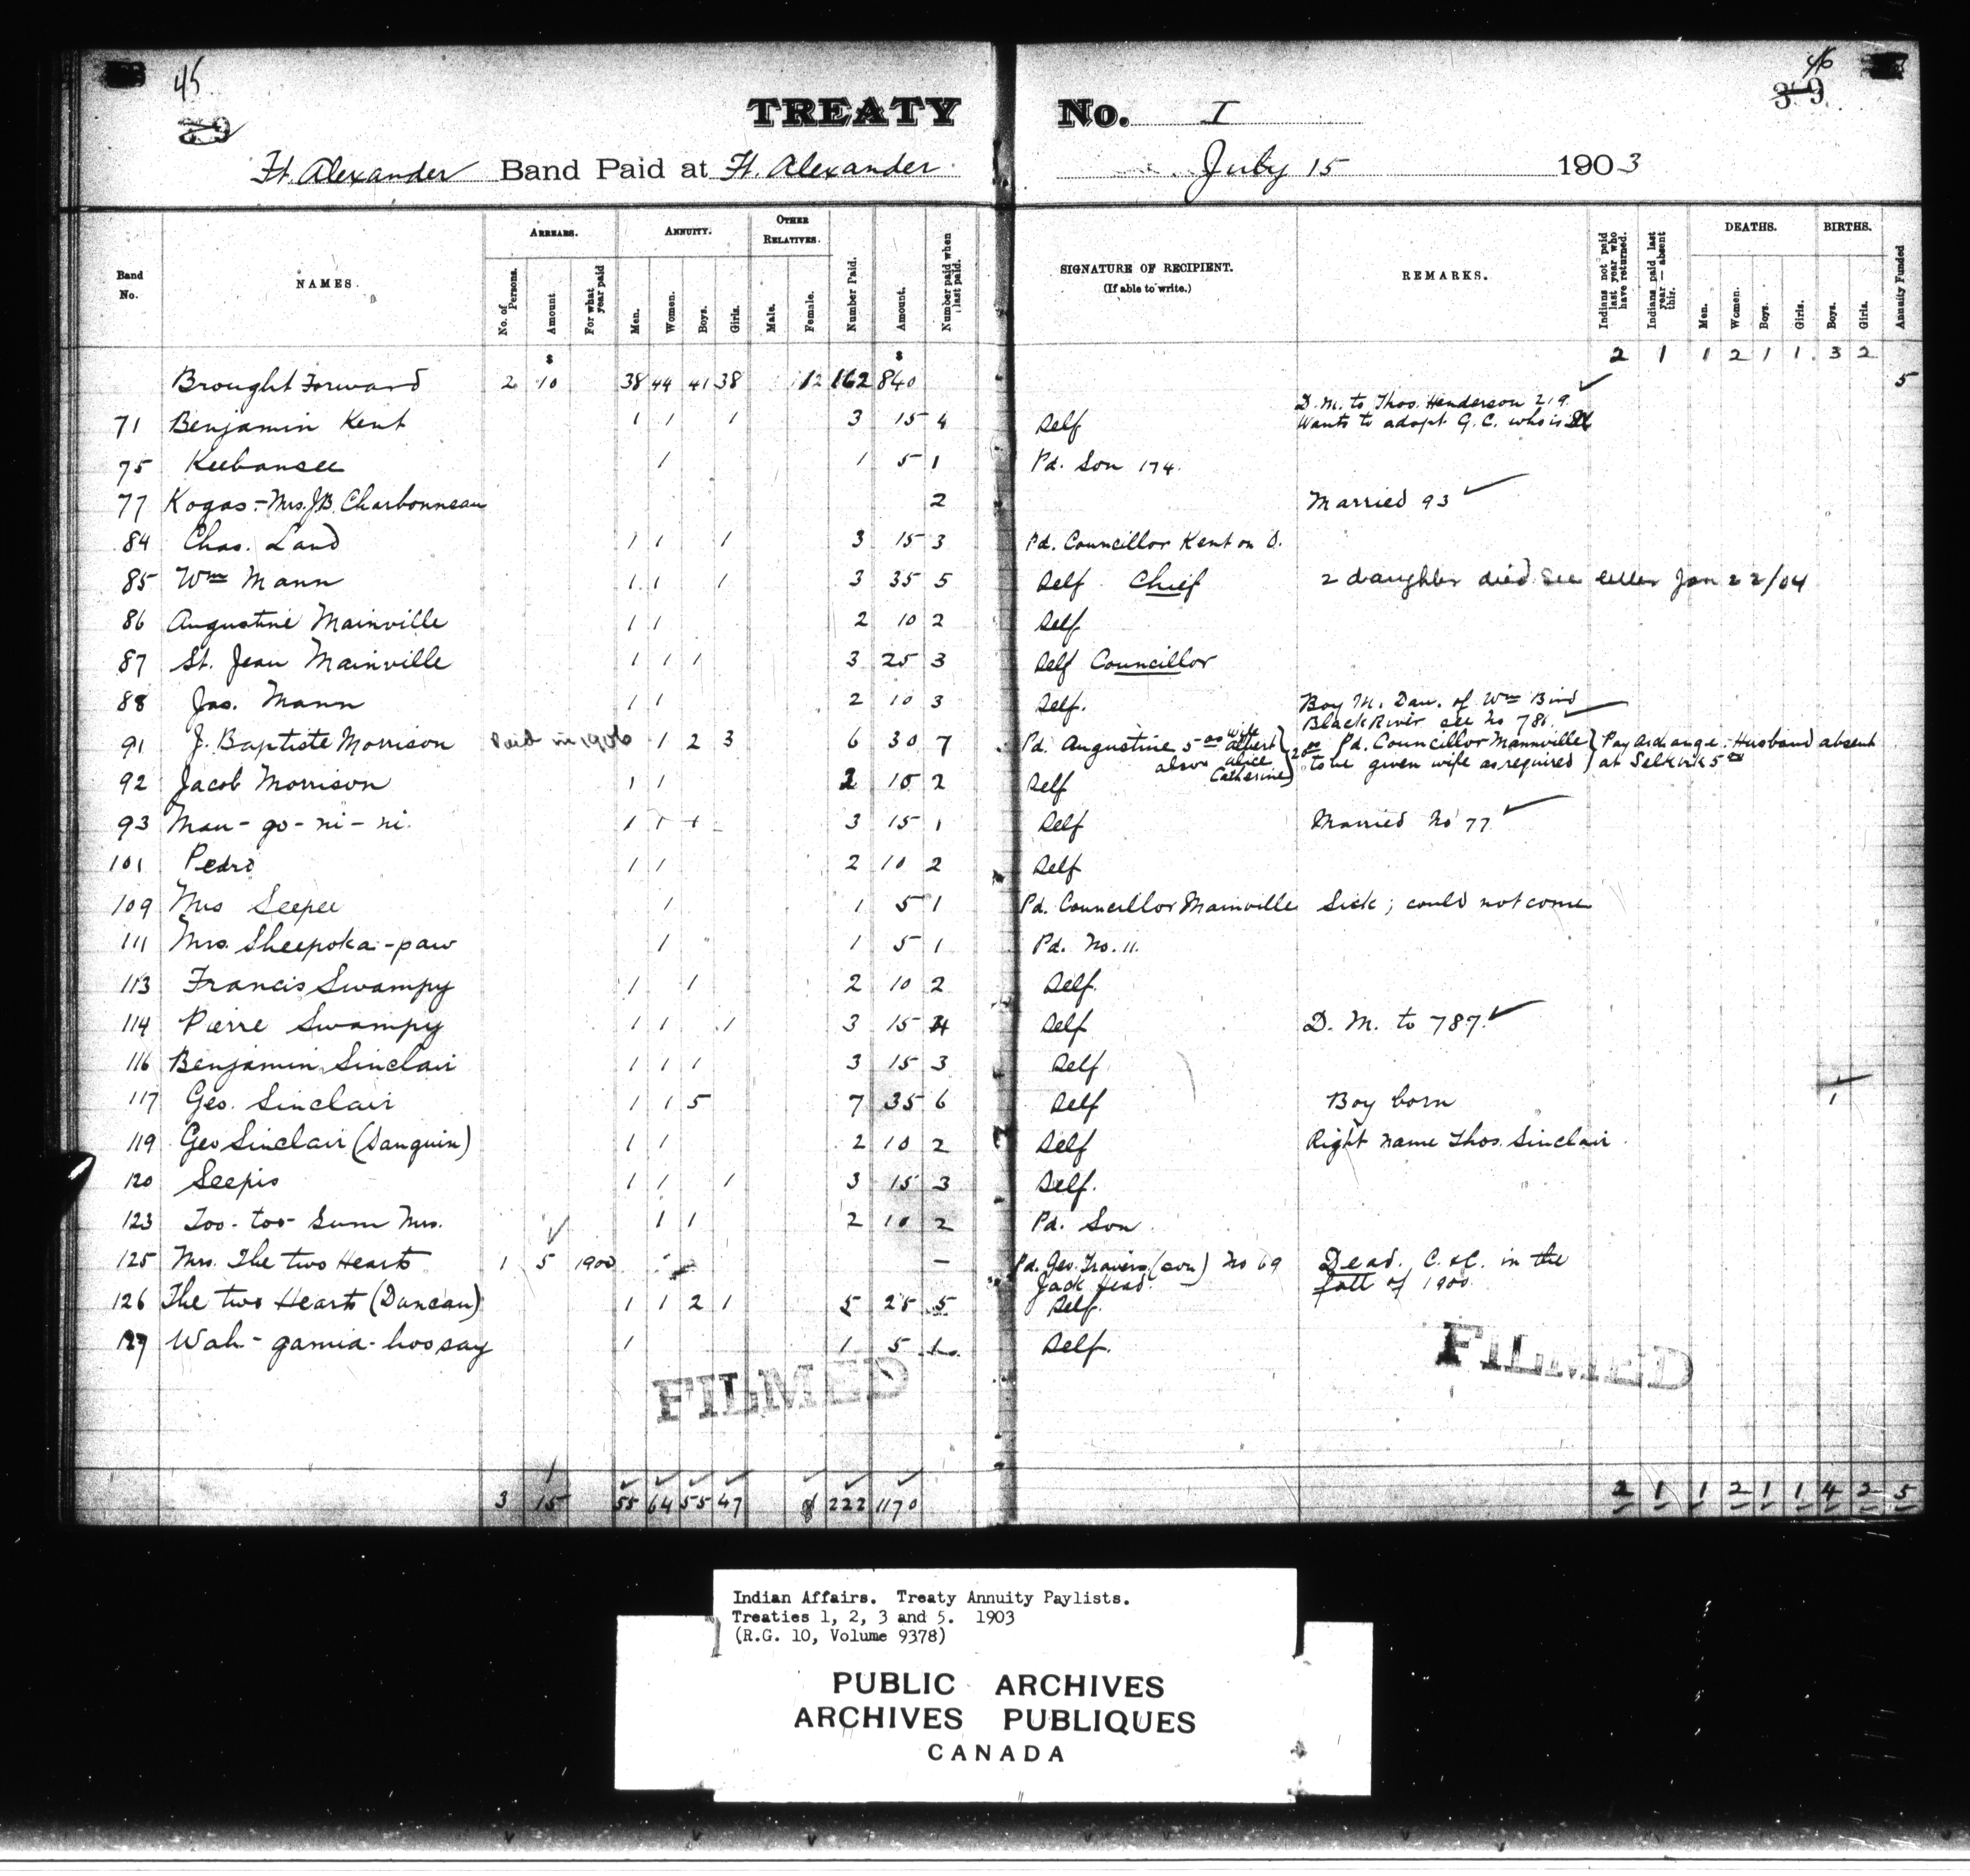 45
46
39
39
TREATY No. I
Ft. Alexander Band Paid at Ft. Alexander July 15 1903
Band No. NAMES. ARREARS. No. of Persons. Amount For what year paid ANNUITY. Men. Women. Boys. Girls. OTHER RELATIVES. Male. Female. Number Paid. Amount. Number paid when last paid. SIGNATURE OF RECIPIENT. (If able to write.) REMARKS. Indians not paid last year who have returned. Indians paid last year — absent this. DEATHS. Men. Women. Boys. Girls. BIRTHS. Boys. Girls. Annuity Funded
$ $ 2 1 1 2 1 1 3 2
Brought Forward 2 10 38 44 41 38 12 162 840 5
D. M. to Thos. Henderson 219
71 Benjamin Kent 1 1 1 3 15 4 Self Wants to adopt G. C. who is
75 Keebansee 1 1 5 1 Pd. Son 174.
77 Kogas - Mrs. J.B. Charbonneau 2 Married 93
84 Chas. Land 1 1 1 3 15 3 Pd. Councillor Kent on O.
85 Wm Mann 1 1 1 3 35 5 Self Chief 2 daughters died see letter Jan 22/04
86 Augustine Mainville 1 1 2 10 2 Self
87 St. Jean Mainville 1 1 1 3 25 3 Self Councillor
88 Jas. Mann 1 1 2 10 3 Self. Boy M. Dau. of Wm Bird
Black River see No 786.
91 J. Baptiste Morrison Paid in 1906 1 2 3 6 30 7 Pd. Augustine 5 00 wife Albert also Alice Catherine 20 00 Pd. Councillor Mannville to be given wife as required Pay ard ange. Husband absent at Selkirk 5 00
92 Jacob Morrison 1 1 2 10 2 Self
93 Mau-go-ni-ni. 1 1 1 3 15 1 Self Married No 77
101 Pedro 1 1 2 10 2 Self
109 Mrs Seepee 1 1 5 1 Pd. Councillor Mainville Sick; could not come
111 Mrs. Sheepoka-paw 1 1 5 1 Pd. No. 11.
113 Francis Swampy 1 1 2 10 2 Self.
114 Pierre Swampy 1 1 1 3 15 4 Self D. M. to 787.
116 Benjamin Sinclair 1 1 1 3 15 3 Self
117 Geo. Sinclair 1 1 5 7 35 6 Self Boy born 1
119 Geo Sinclair (Danguin) 1 1 2 10 2 Self Right name Thos. Sinclair
120 Seepis 1 1 1 3 15 3 Self.
123 Too-too-Sum Mrs. 1 1 2 10 2 Pd. Son
125 Mrs. The two Hearts 1 5 1900 — Pd. Geo. Travers (son) No 69 Dead. C. of C. in the
Jack Head. fall of 1900
126 The two Hearts (Duncan) 1 1 2 1 5 25 5 Self.
127 Wah-gamia-hoosay 1 1 5 1 Self.
FILMED
FILMED
3 15 55 64 55 47 222 1170 2 1 1 2 1 1 4 2 5
Indian Affairs. Treaty Annuity Paylists.
Treaties 1, 2, 3 and 5. 1903
(R.G. 10, Volume 9378)
PUBLIC ARCHIVES
ARCHIVES PUBLIQUES
CANADA